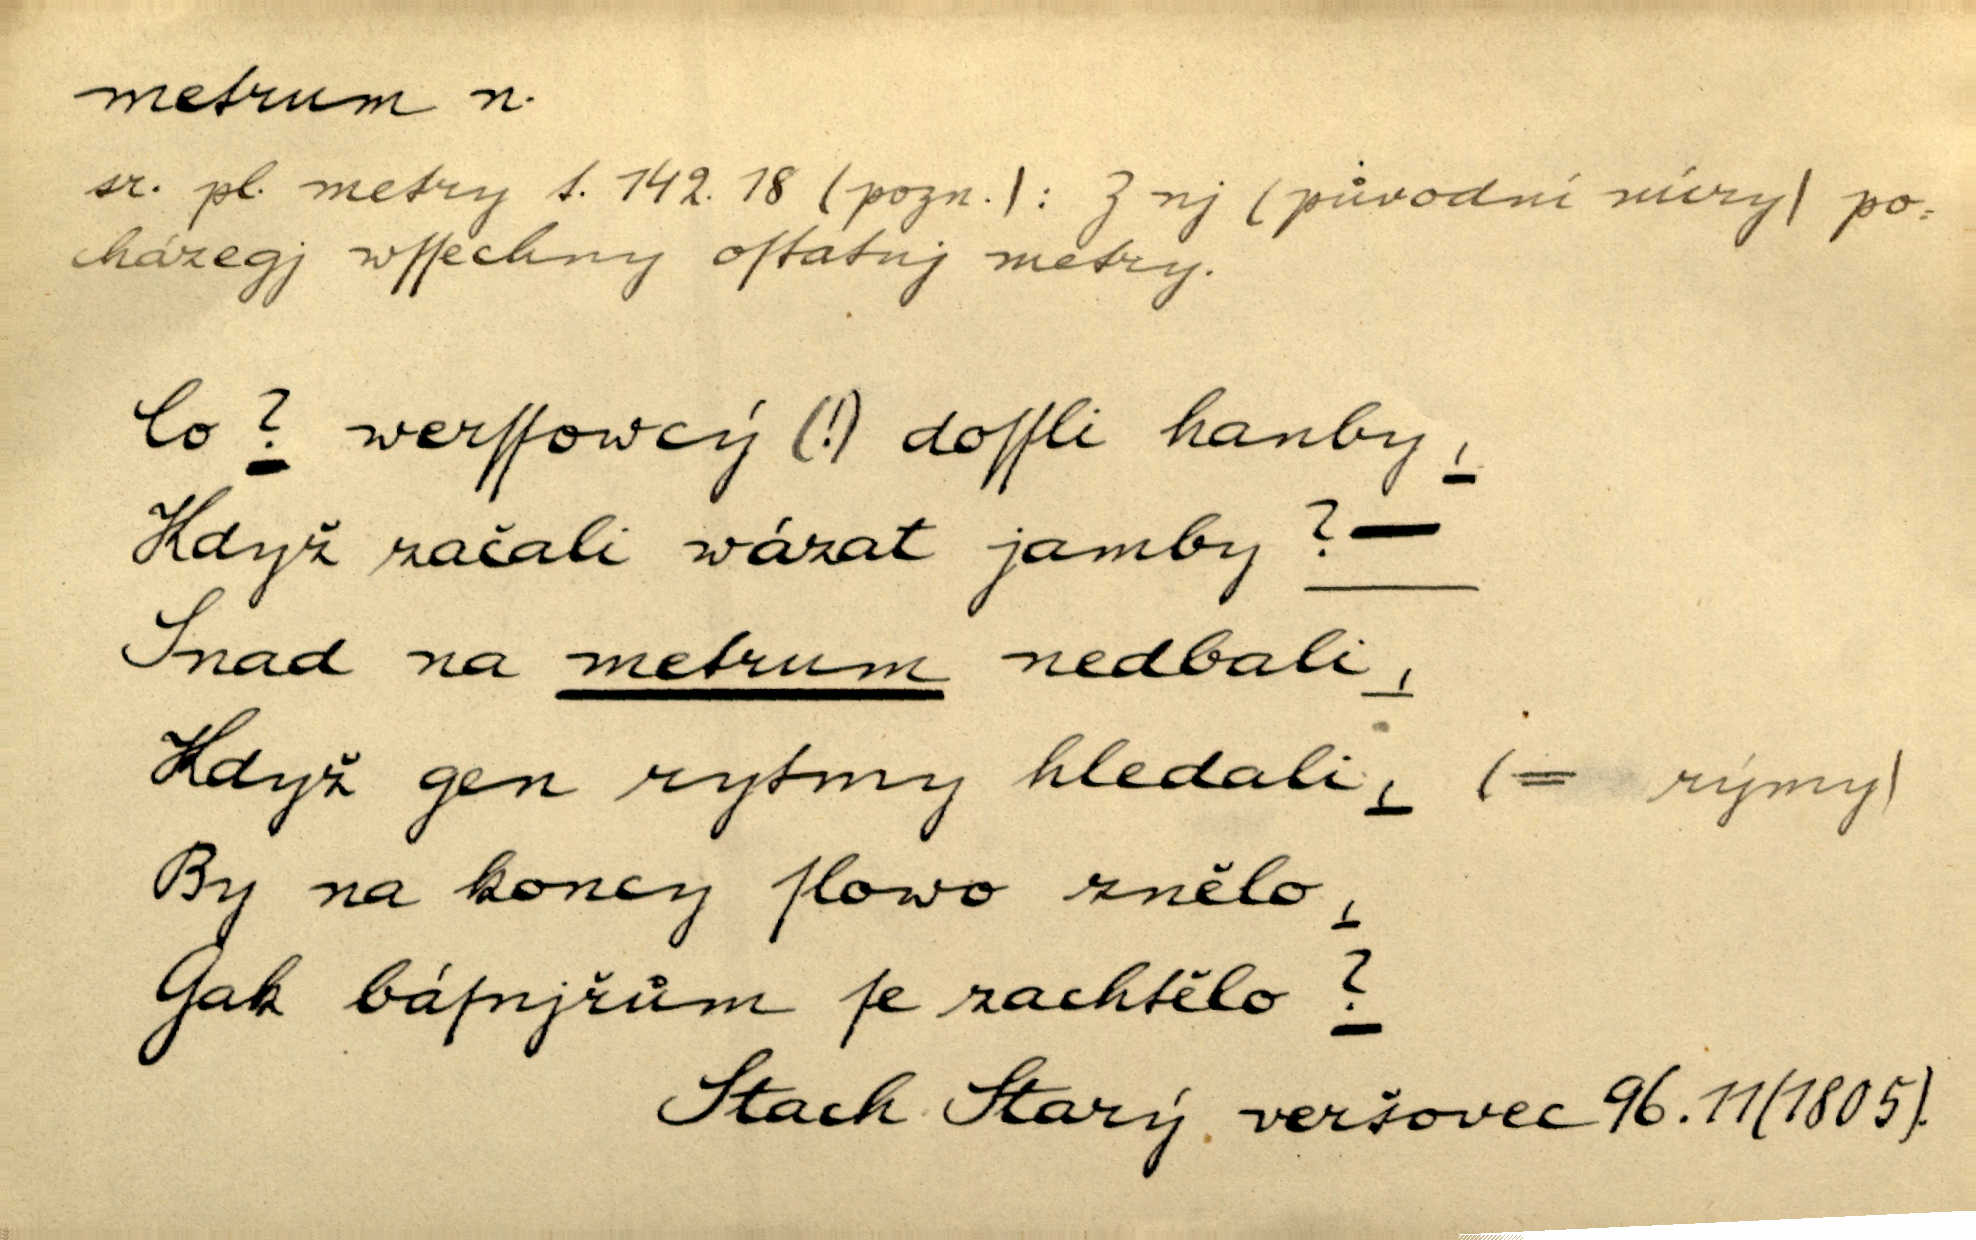 metrum n.
sr. pl. metry t. 142. 18 (pozn.): Z nj (původní míry) po=
cházegj wſſechny oſtatnj metry.
Co? werſſowcý (!) doſſli hanby,
Když začali wázat jamby? —
Snad na metrum nedbali,
Když gen rytmy hledali, (= rýmy)
By na koncy ſlowo znělo,
Gak báſnjřům ſe zachtělo?
Stach Starý veršovec 96. 11 (1805).